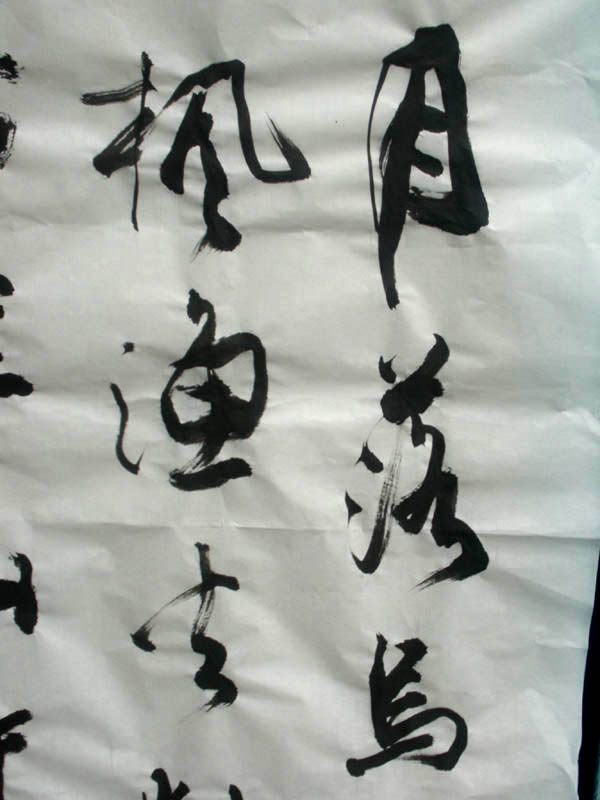 月落烏
楓漁火